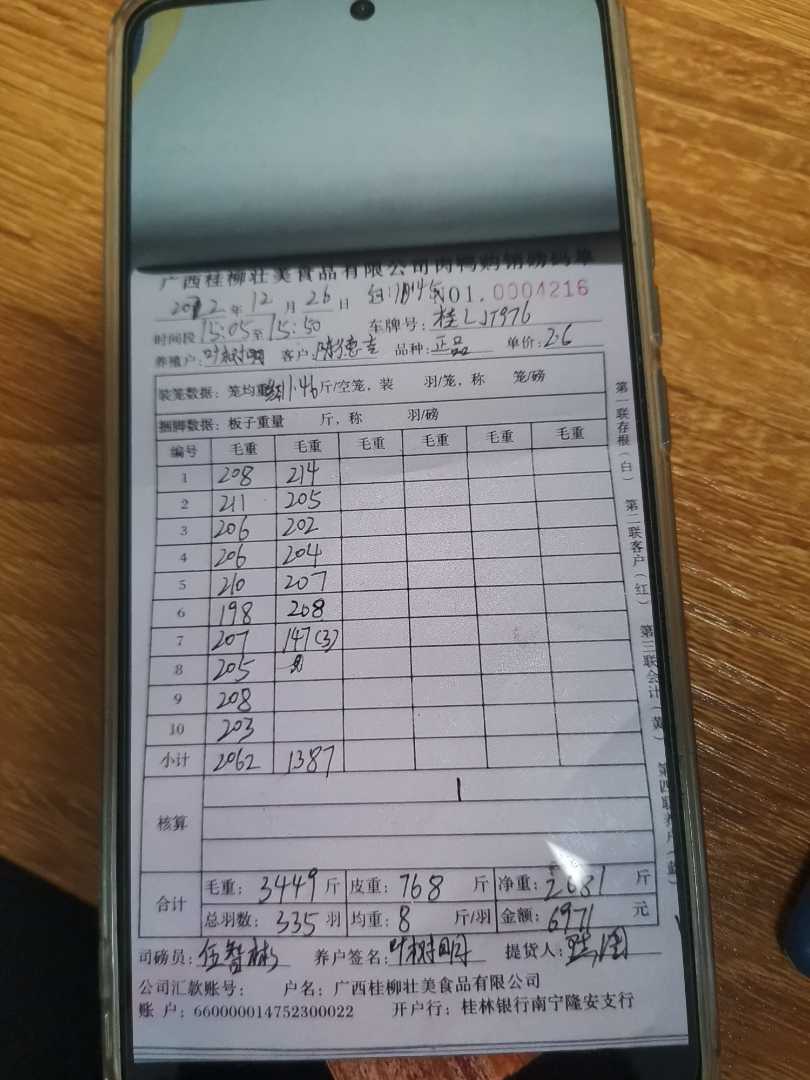 广西桂柳壮美食品有限公司肉鸭购销磅码单
2022年12月26日 NO1.0004216
时间段 15:05至15:50 车牌号：桂LJ7976
养殖户：叶树明 客户：陈德 品种：正品 单价：2.6
装笼数据：笼均重 11.46斤/空笼，装 羽/笼，称 笼/磅
捆脚数据：板子重量 斤，称 羽/磅
编号 毛重 毛重 毛重 毛重 毛重 毛重
1 208 214
2 211 205
3 206 202
4 206 204
5 210 207
6 198 208
7 207 147(3)
8 205
9 208
10 203
小计 2062 1387
核算
合计 毛重：3449斤 皮重：768斤 净重：2681斤
总羽数：335羽 均重：8斤/羽 金额：6971元
司磅员：伍智彬 养户签名：叶树明 提货人：
公司汇款账号： 户名：广西桂柳壮美食品有限公司
账 户：660000014752300022 开户行：桂林银行南宁隆安支行
第一联存根（白） 第二联客户（红） 第三联会计（黄） 第四联养户（蓝）